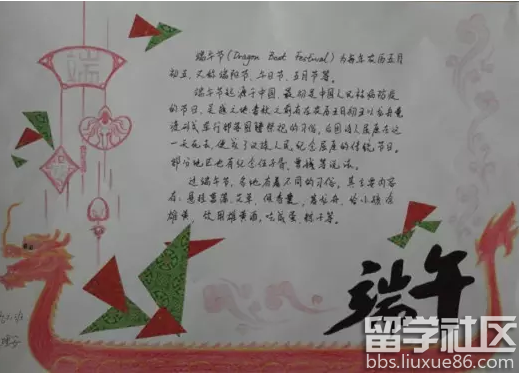 端
端午节(Dragon Boat Festival)为每年农历五月
初五,又称端阳节、午日节、五月节等。
端午节起源于中国,最初是中国人民祛病防疫
的节日,
龙舟竞
渡形式举行部落图腾祭祀的习俗;后因诗人屈原在这
一天死去,便成了汉族人民纪念屈原的传统节日。
部分地区也有纪念伍子胥、曹娥等说法。
过端午节,各地有着不同的习俗。其主要内容
有:悬挂菖蒲、艾草,佩香囊,赛龙舟,给小孩涂
雄黄,饮用雄黄酒,吃咸蛋、粽子等。
端午
留学社区
bbs.liuxue86.com